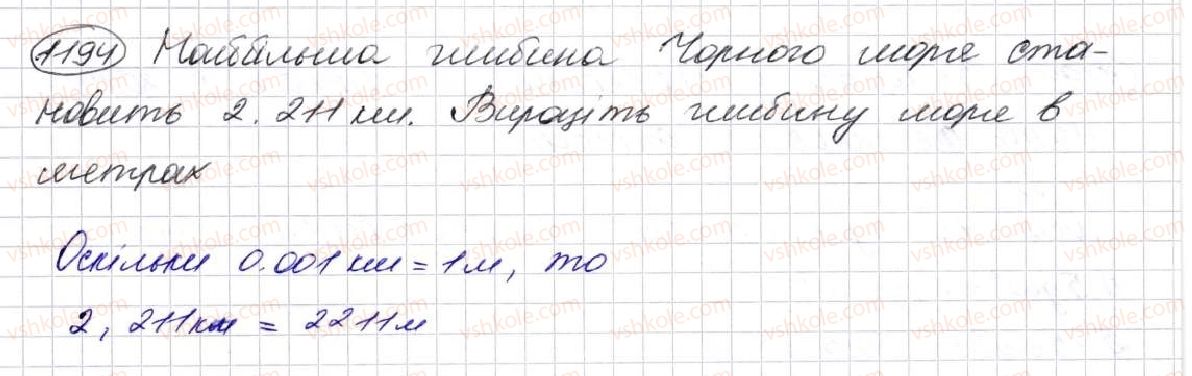 1194 Найбільша глибина Чорного моря ста-
новить 2.211 км. Виразіть глибину моря в
метрах
Оскільки 0.001 км = 1м, то
2,211км = 2211м